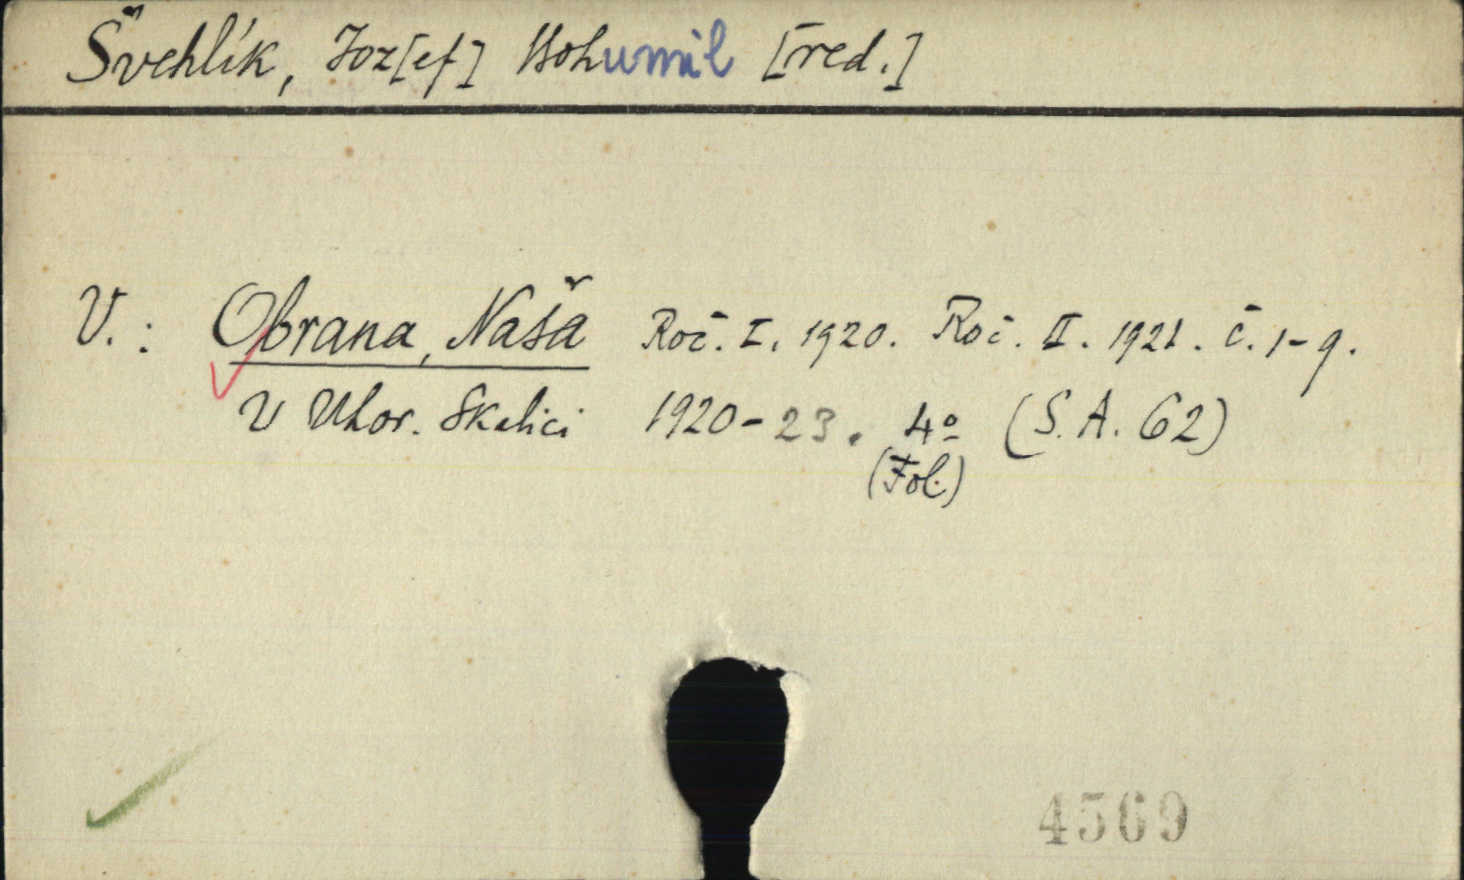 Švehlík, Joz[ef] Bohumil [red.]
V.: Obrana, Naša Roč. I. 1920. Roč. II. 1921. č. 1-9.
V Uhor. Skalici 1920-23. 4º (S. A. 62)
(Fol.)
4569